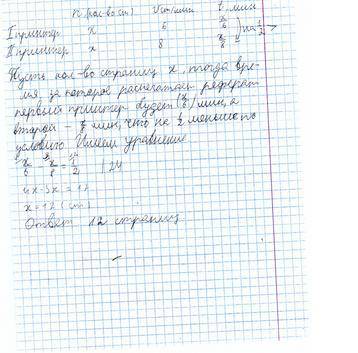 к(кол-во ст) V ст/мин t, мин
I принтер x 6 x/6
II принтер x 8 x/8 } на 1/2 >
Пусть кол-во страниц x, тогда вре-
мя, за которое распечатает реферат
первый принтер будет (x/6) мин, а
второй – x/8 мин, что на 1/2 меньше по
условию. Имеем уравнение
x/6 - x/8 = 1/2 | 24
4x-3x = 12
x = 12 (ст)
Ответ 12 страниц.